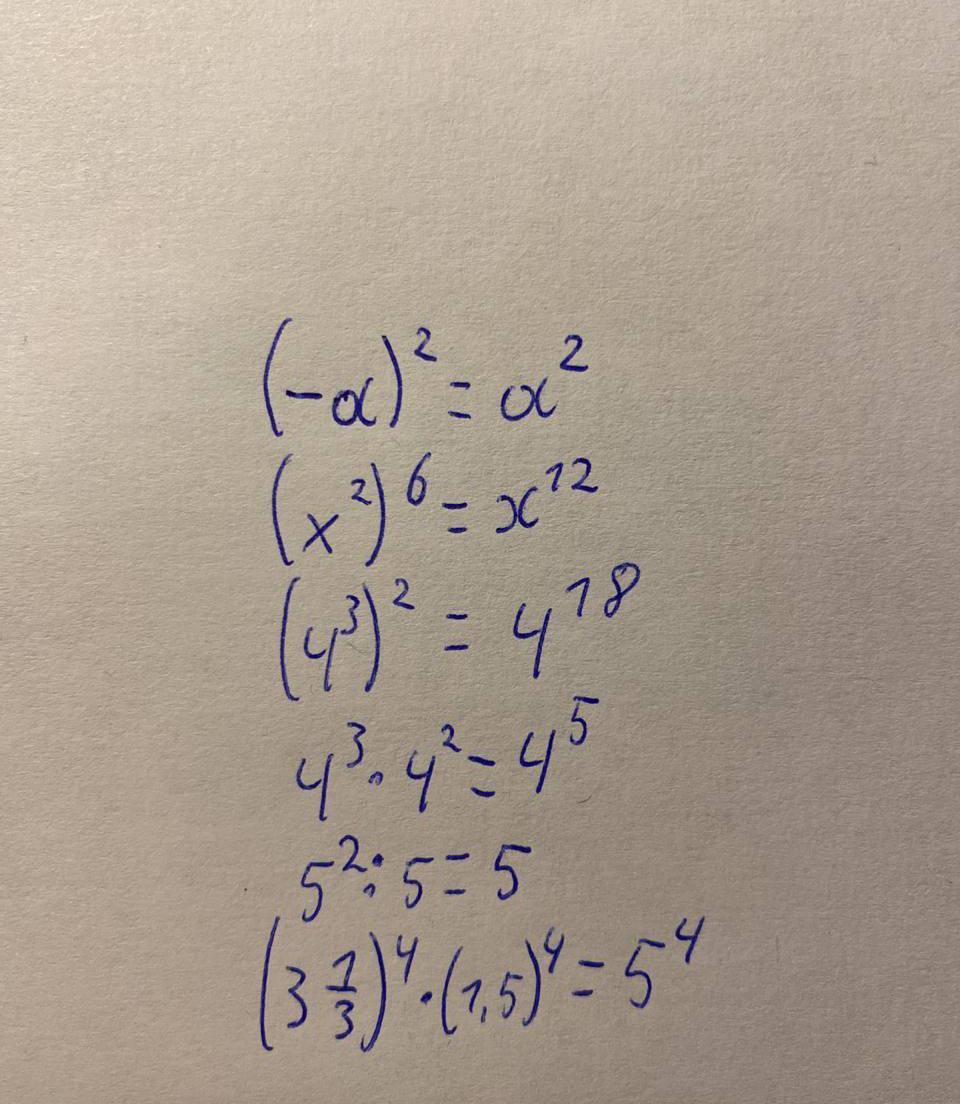 (-a)² = a²
(x²)⁶ = x¹²
(4³)² = 4¹⁸
4³ · 4² = 4⁵
5² : 5 = 5
(3 1/3)⁴ · (1,5)⁴ = 5⁴